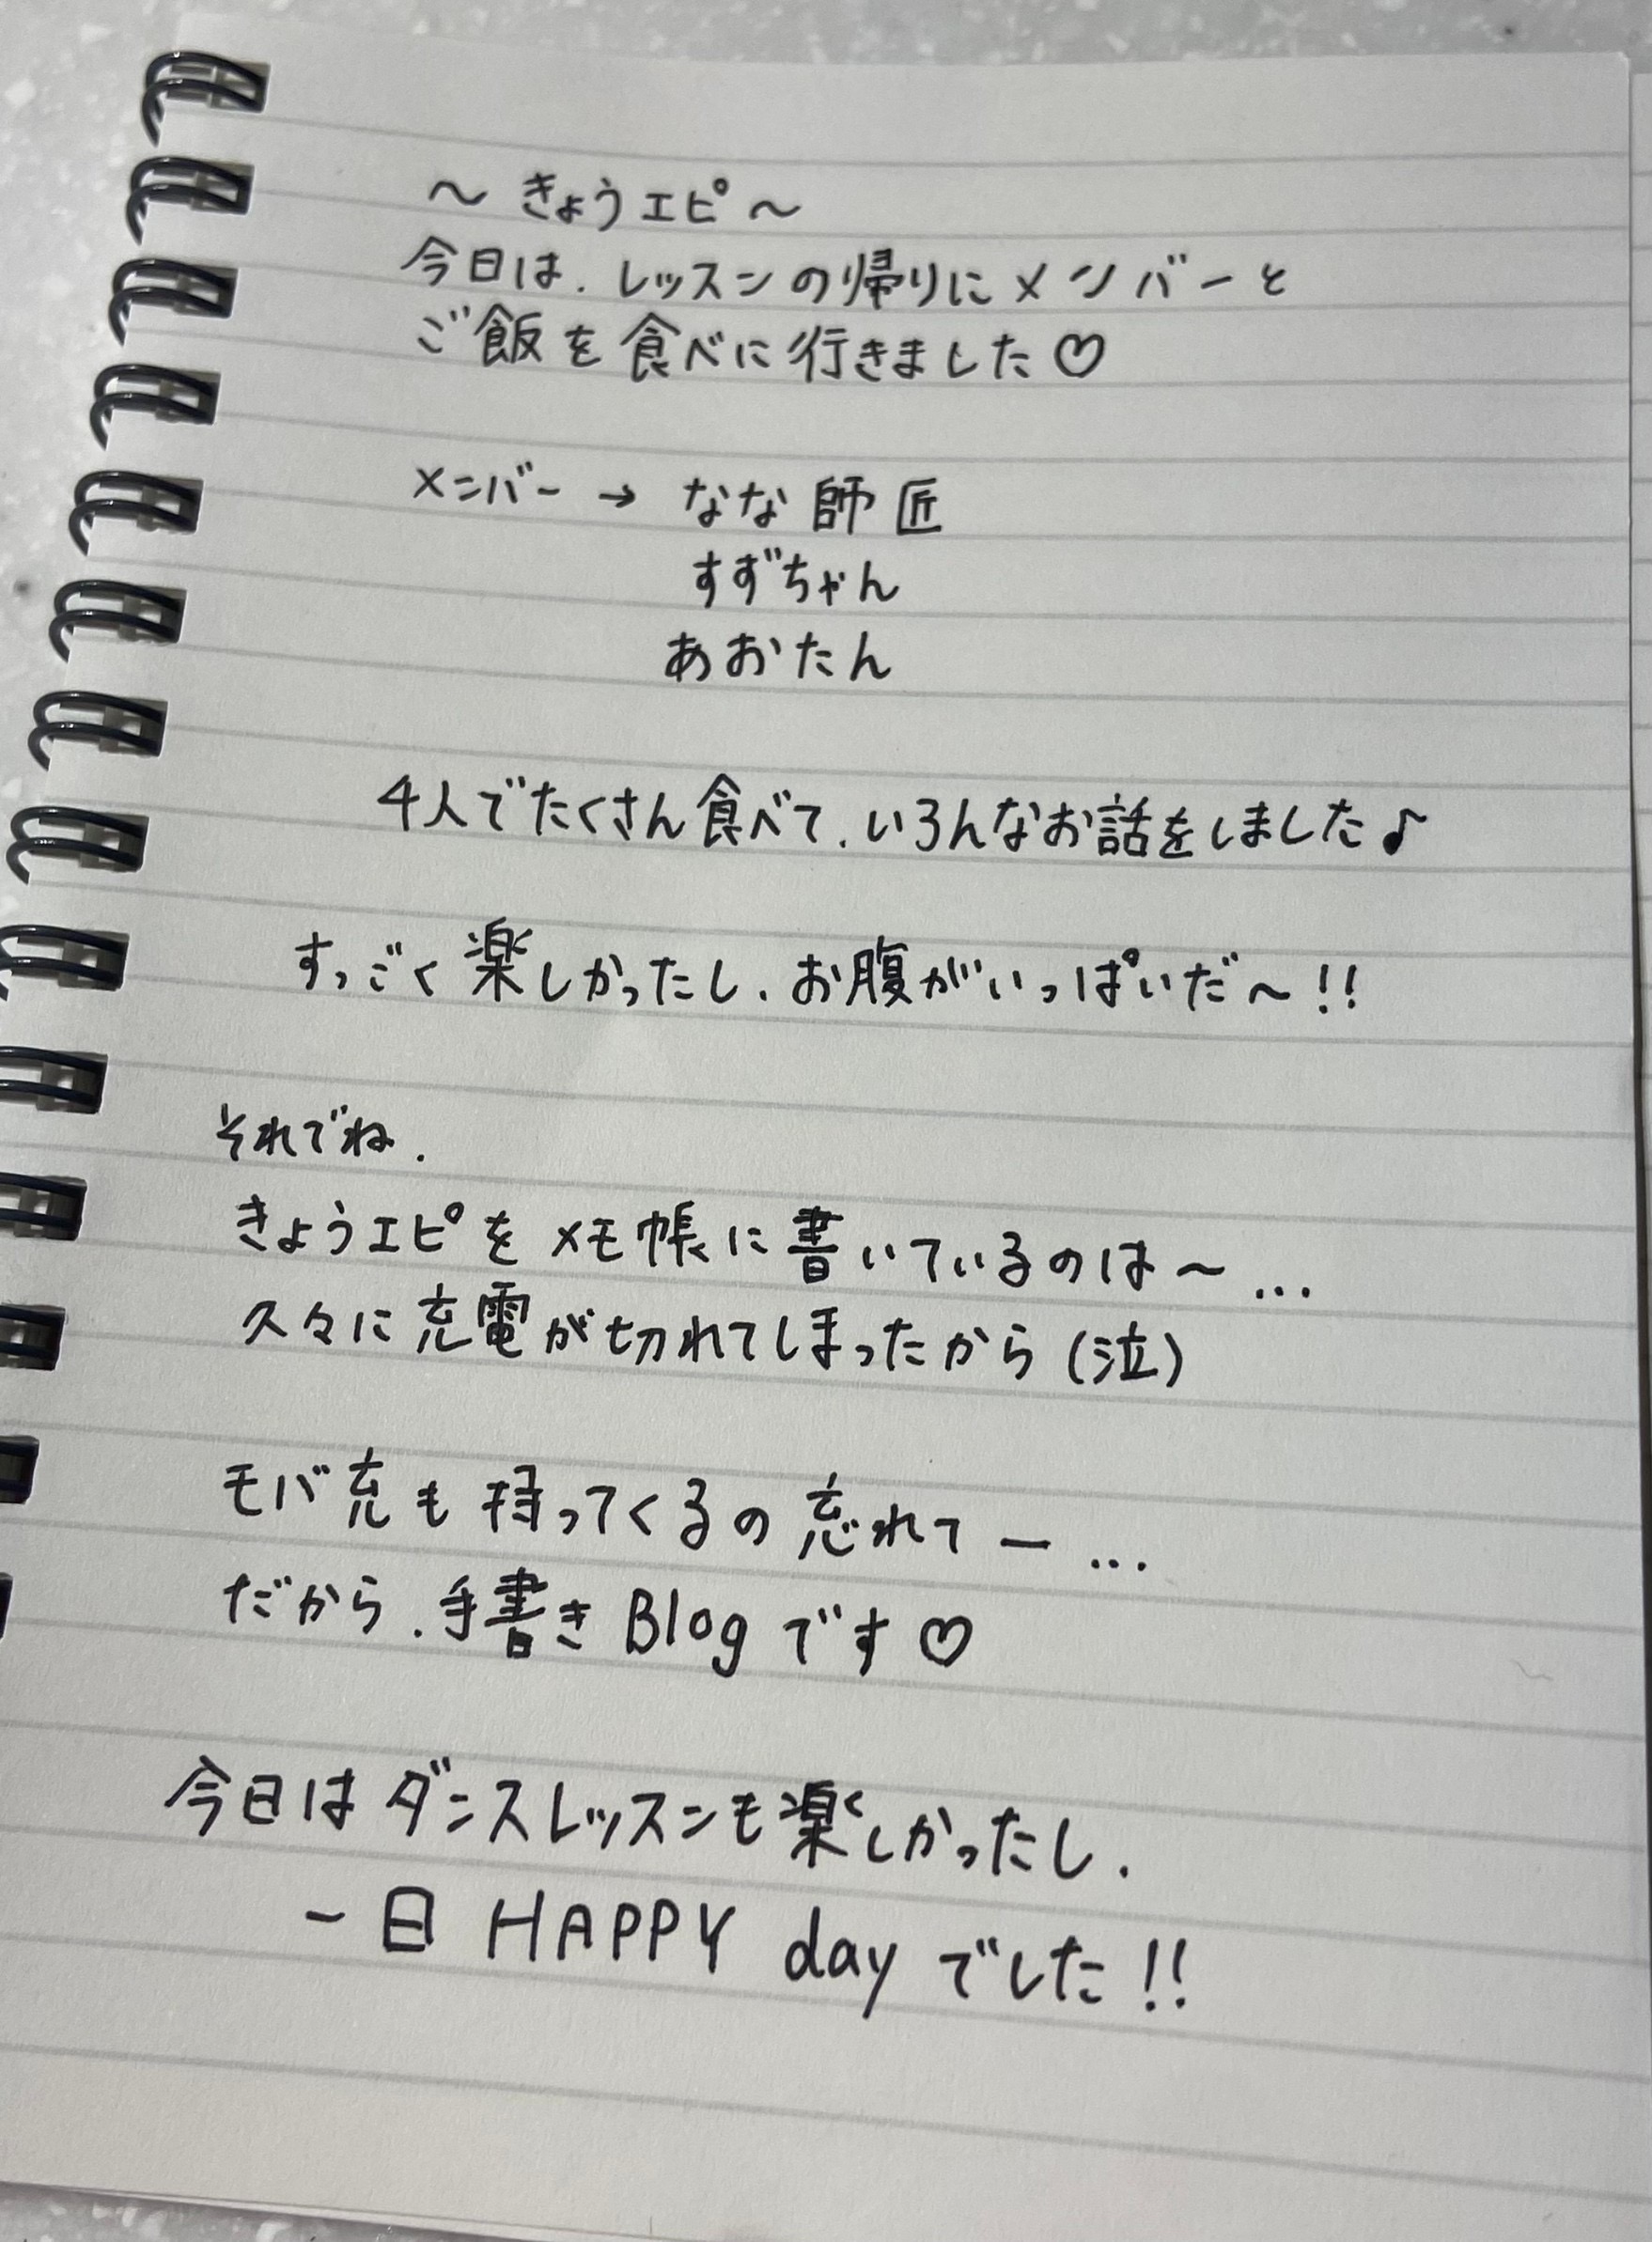 ～きょうエピ～
今日は、レッスンの帰りにメンバーと
ご飯を食べに行きました♡
メンバー→なな師匠
すずちゃん
あおたん
4人でたくさん食べて、いろんなお話をしました♪
すっごく楽しかったし、お腹がいっぱいだ～!!
それでね、
きょうエピをメモ帳に書いているのは～...
久々に充電が切れてしまったから(泣)
モバ充も持ってくるの忘れてー...
だから、手書きBlogです♡
今日はダンスレッスンも楽しかったし、
一日HAPPY dayでした!!